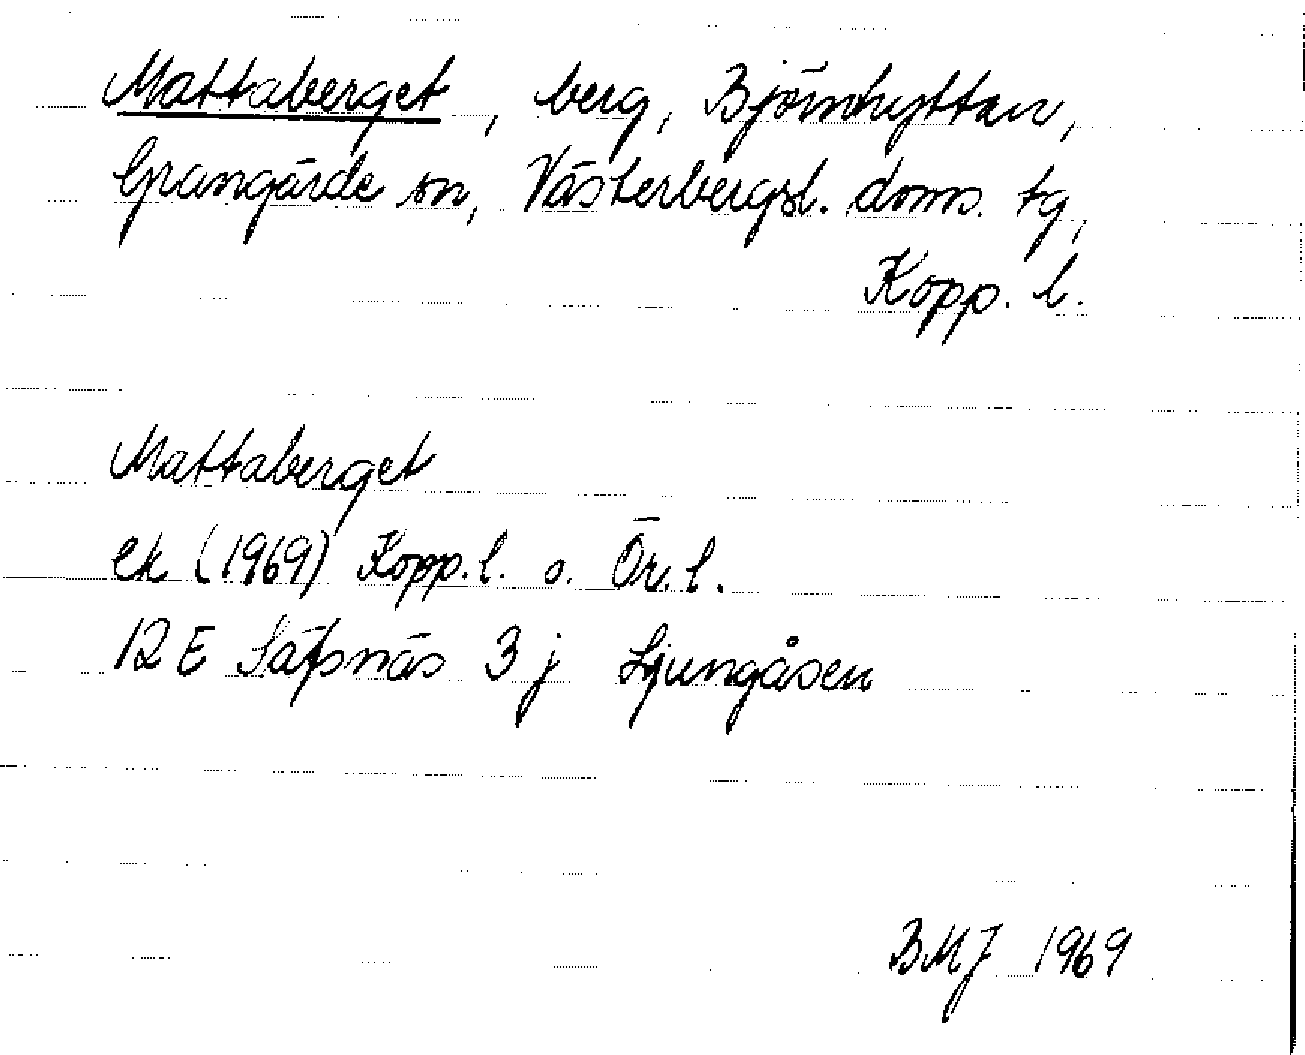 Mattaberget, berg, Björnhyttan,
Grangärde sn, Västerbergsl. doms. tg,
Kopp. l.
Mattaberget
ek (1969) Kopp. l. o. Ör. l.
12 E Säfsnäs 3 j Ljungåsen
BMJ 1969